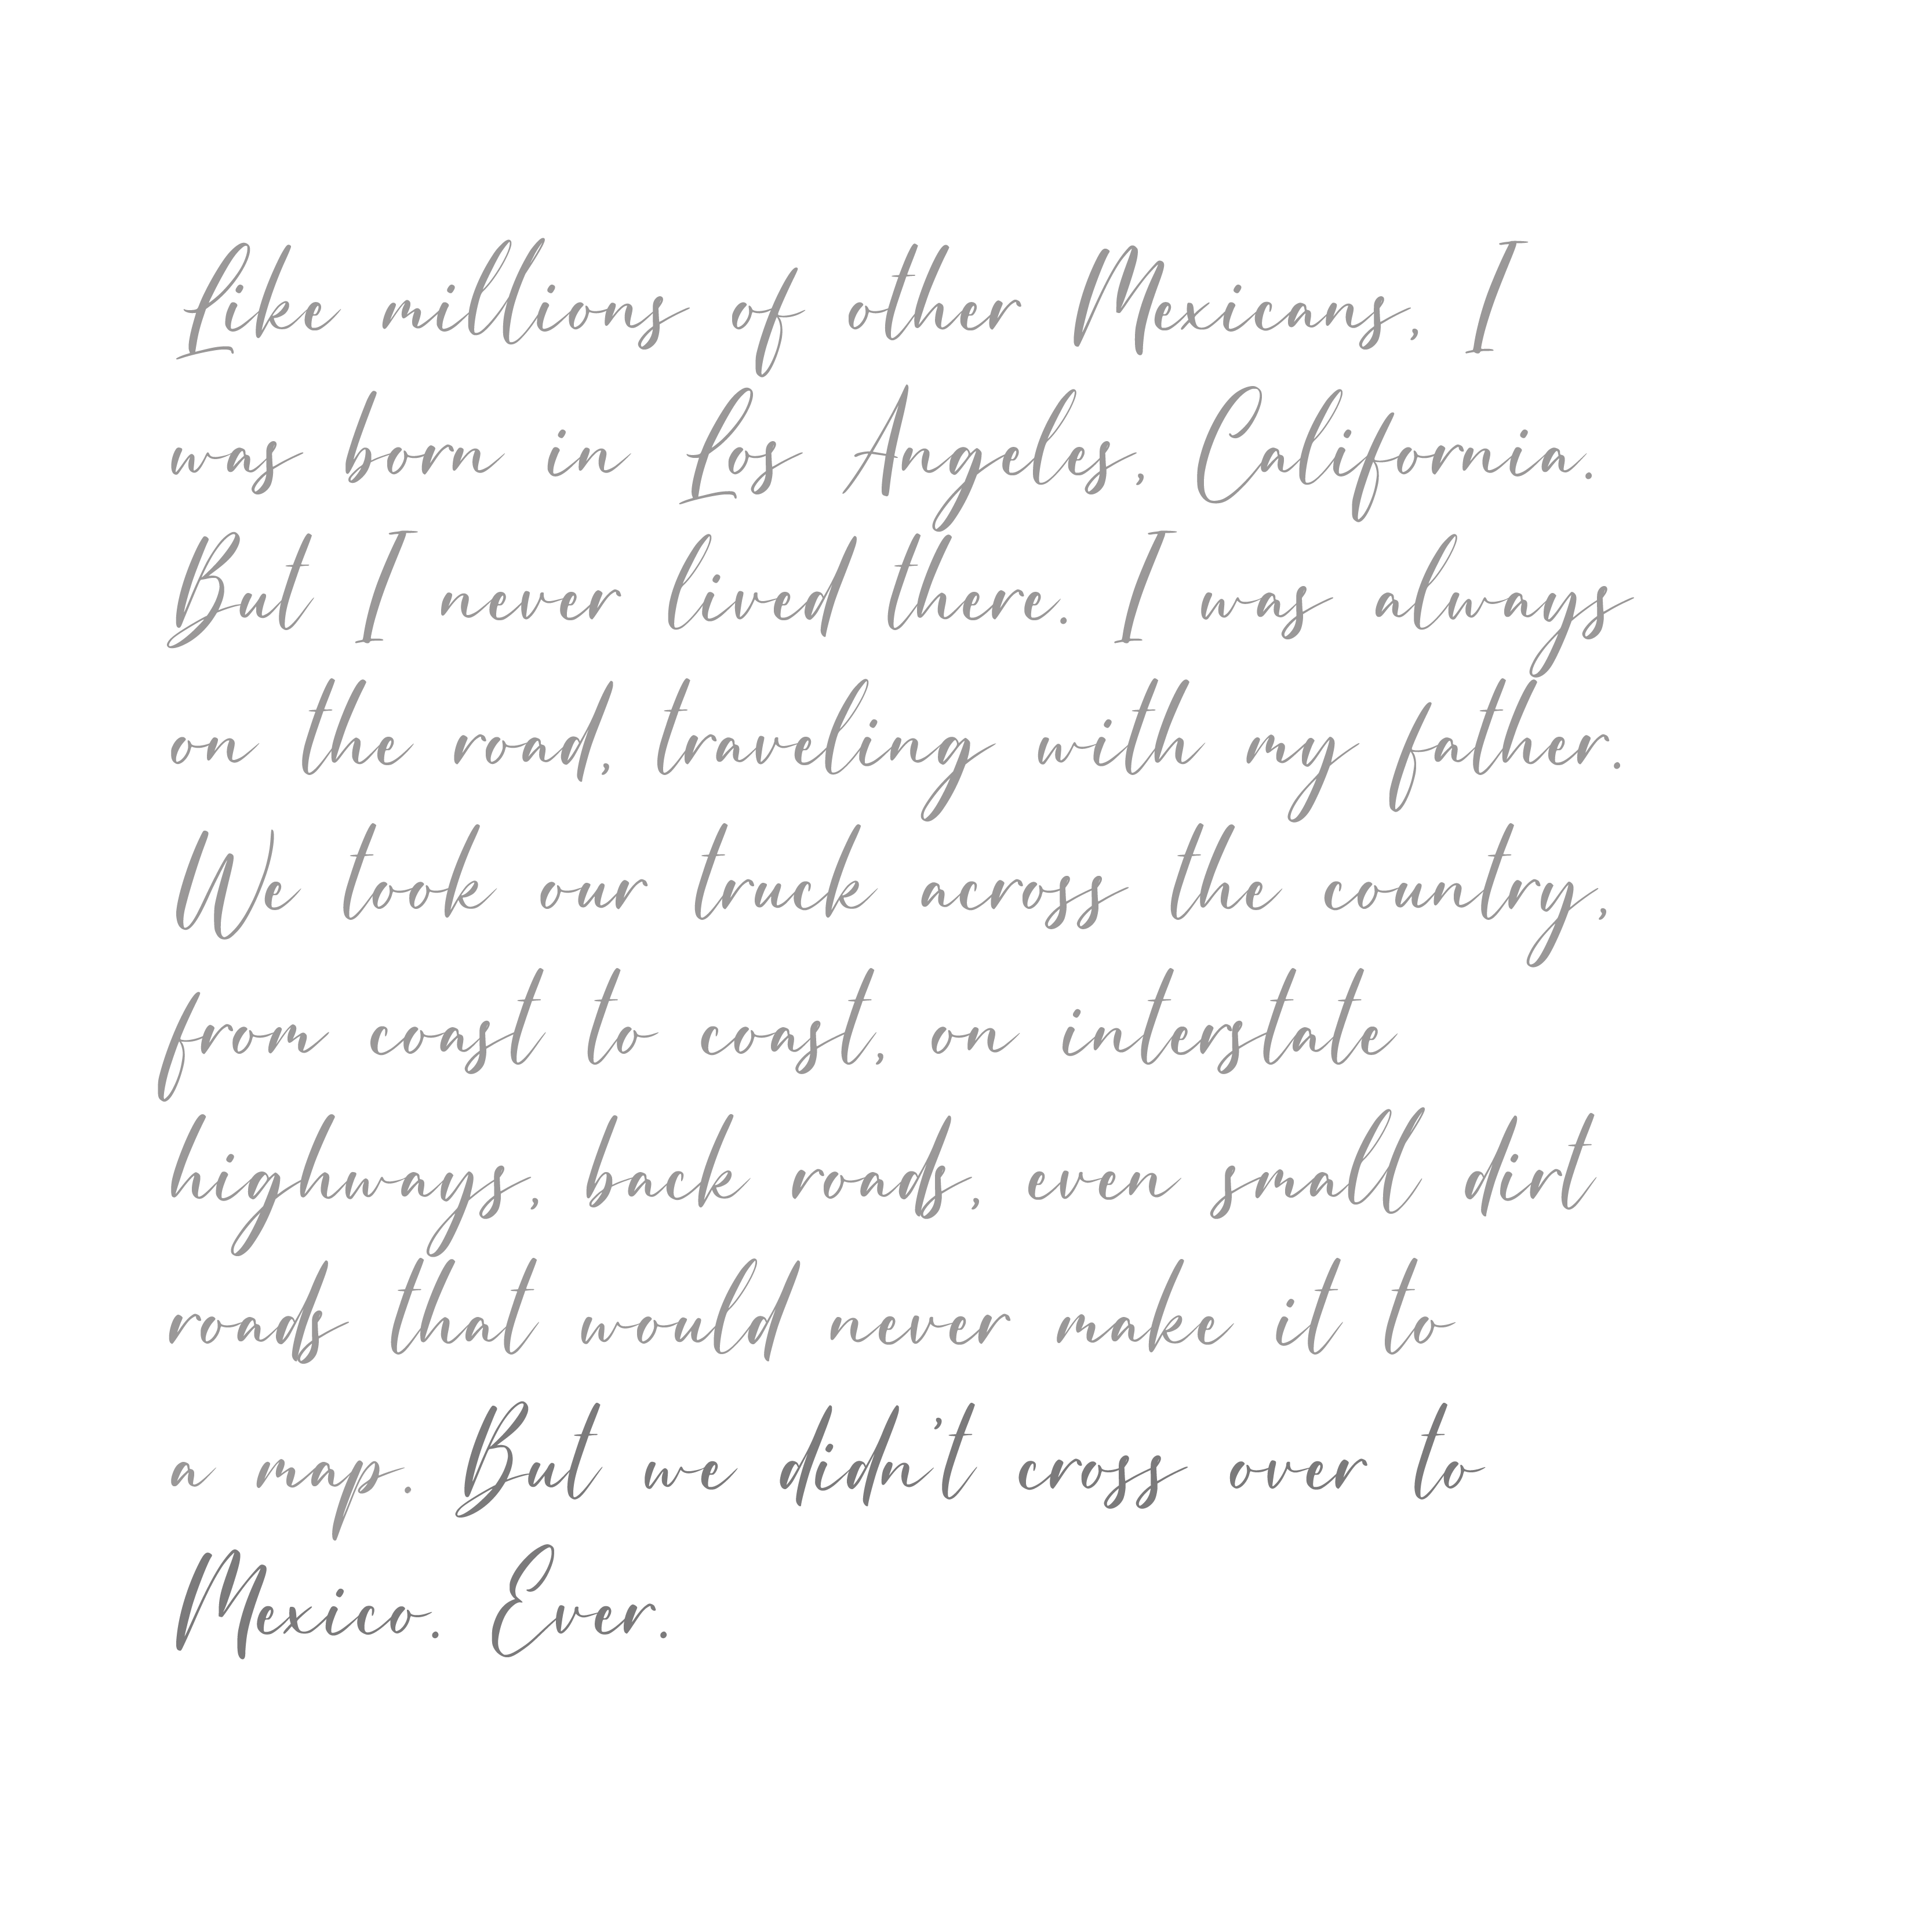 Like millions of other Mexicans, I
was born in Los Angeles, California.
But I never lived there. I was always
on the road, traveling with my father.
We took our truck across the country,
from east to coast, on interstate
highways, back roads, even small dirt
roads that would never make it to
a map. But we didn't cross over to
Mexico. Ever.